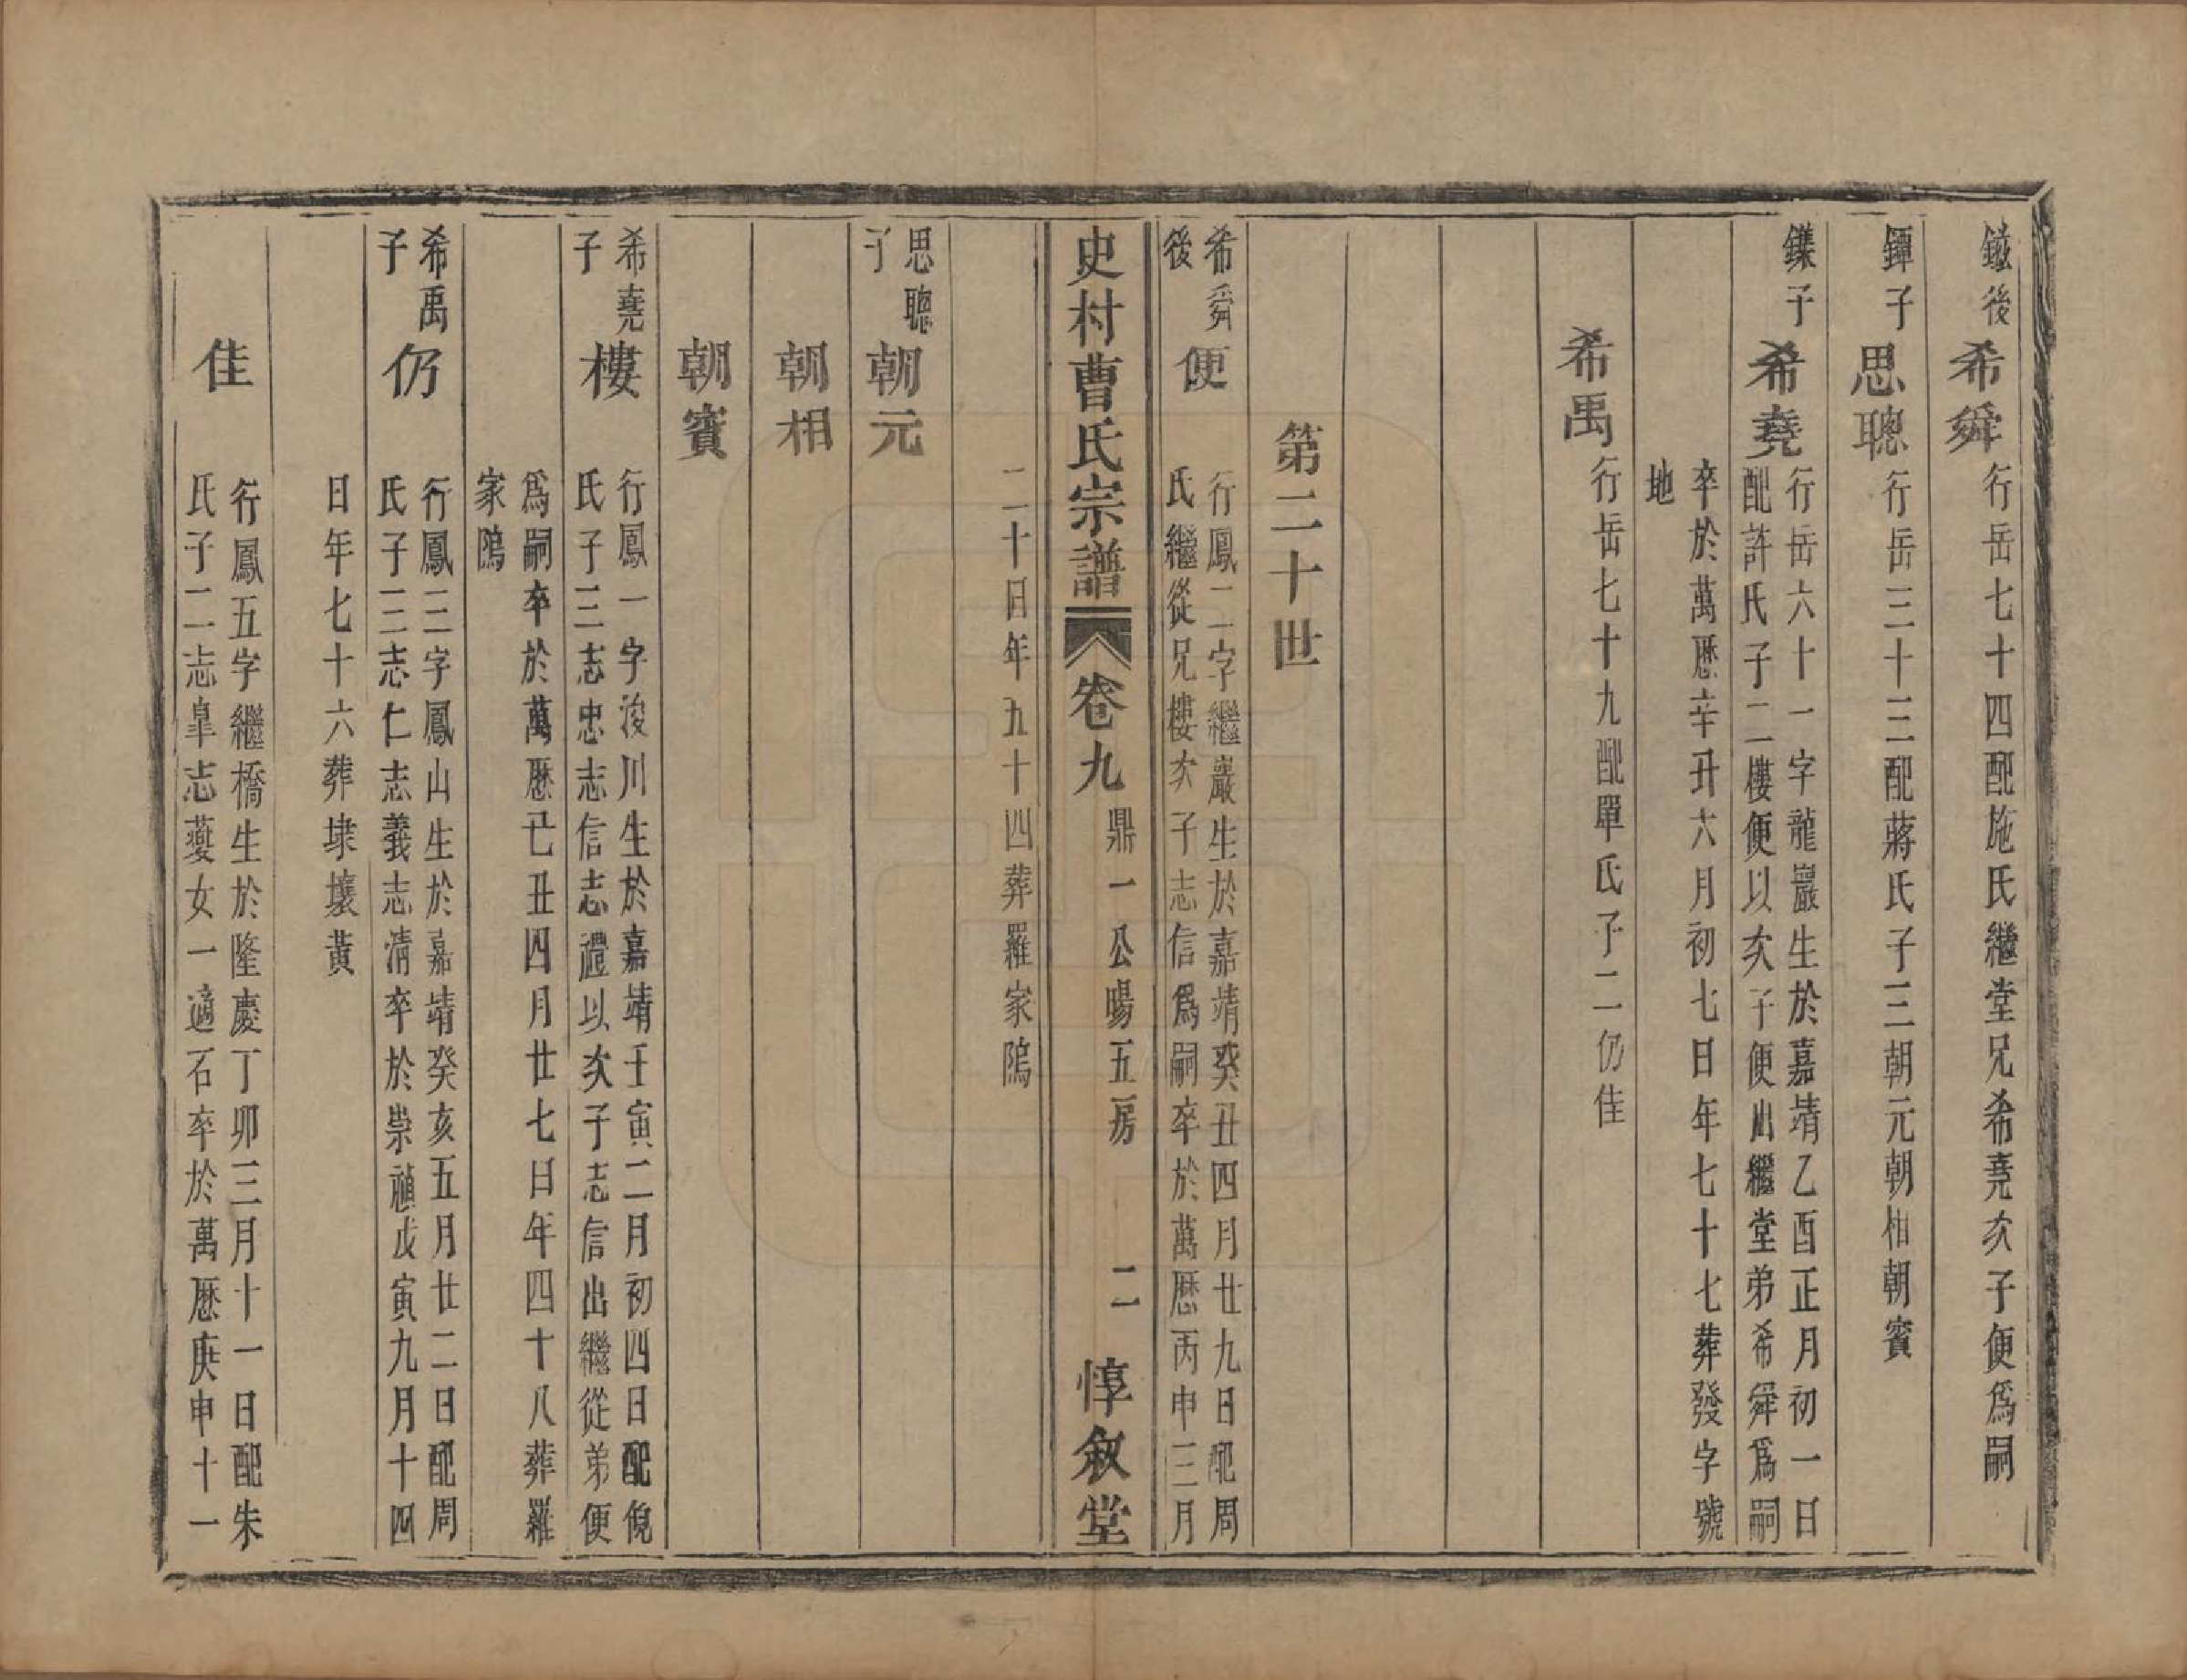 鎡後
希舜
行岳七十四配施氏繼堂兄希堯次子便爲嗣
鏵子
思聰
行岳三十三配蔣氏子三朝元朝相朝賓
鏷子
希堯
行岳六十一字龍巖生於嘉靖乙酉正月初一日
配許氏子二樓便以次子便出繼堂弟希舜爲嗣
卒於萬歷辛丑六月初七日年七十七葬發字號
地
希禹
行岳七十九配單氏子二仍佳
第二十世
希舜
後
便
行鳳二字繼巖生於嘉靖癸丑四月廿九日配周
氏繼從兄樓次子志信爲嗣卒於萬歷丙申三月
史村曹氏宗譜
卷九
鼎一公暘五房
二
惇叙堂
二十日年九十四葬羅家隖
思聰
子
朝元
朝相
朝賓
希堯
子
樓
行鳳一字浚川生於嘉靖壬寅二月初四日配倪
氏子三志忠志信志禮以次子志信出繼從弟便
爲嗣卒於萬歷己丑四月廿七日年四十八葬羅
家隖
希禹
子
仍
行鳳三字鳳山生於嘉靖癸亥五月廿二日配周
氏子三志仁志義志清卒於崇禎戊寅九月十四
日年七十六葬埭壤黃
佳
行鳳五字繼橋生於隆慶丁卯三月十一日配朱
氏子二志臯志夔女一適石卒於萬歷庚申十一